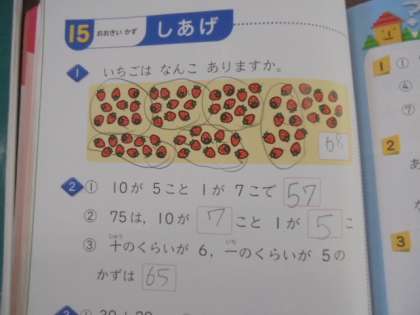 15 おおきい かず しあげ
1 いちごは なんこ ありますか。
68
2 ① 10が 5こと 1が 7こで 57
② 75は，10が 7 こと 1が 5 こ
③ 十のくらいが 6，一のくらいが 5の
かずは 65
1 ①
④
⑦
2
3